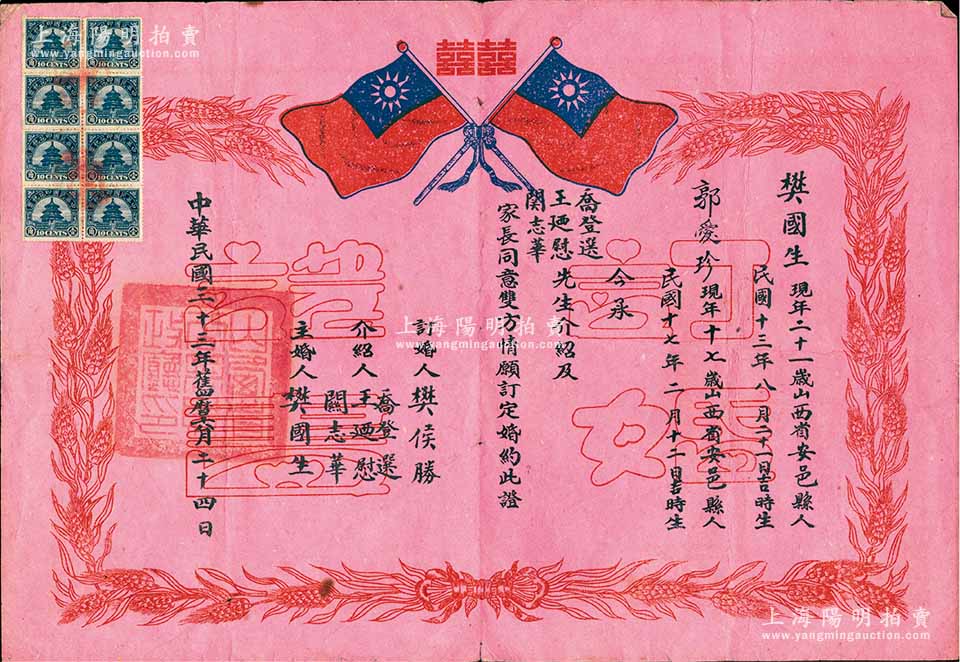 囍囍
樊國生 現年二十一歲山西省安邑縣人
民國十三年八月二十一日吉時生
郭愛珍 現年十七歲山西省安邑縣人
民國十七年二月十二日吉時生
今承
喬登選
王廼慰 先生介紹及
関志華
家長同意雙方情願訂定婚約此證
訂婚人 樊侯勝
喬登選
介紹人 王廼慰
関志華
主婚人 樊國生
中華民國三十三年舊曆六月二十四日
訂婚證書
10 CENTS 10 CENTS
10 CENTS 10 CENTS
10 CENTS 10 CENTS
10 CENTS 10 CENTS
上海陽明拍賣
www.yangmingauction.com
上海陽明拍賣
www.yangmingauction.com
上海陽明拍賣
www.yangmingauction.com